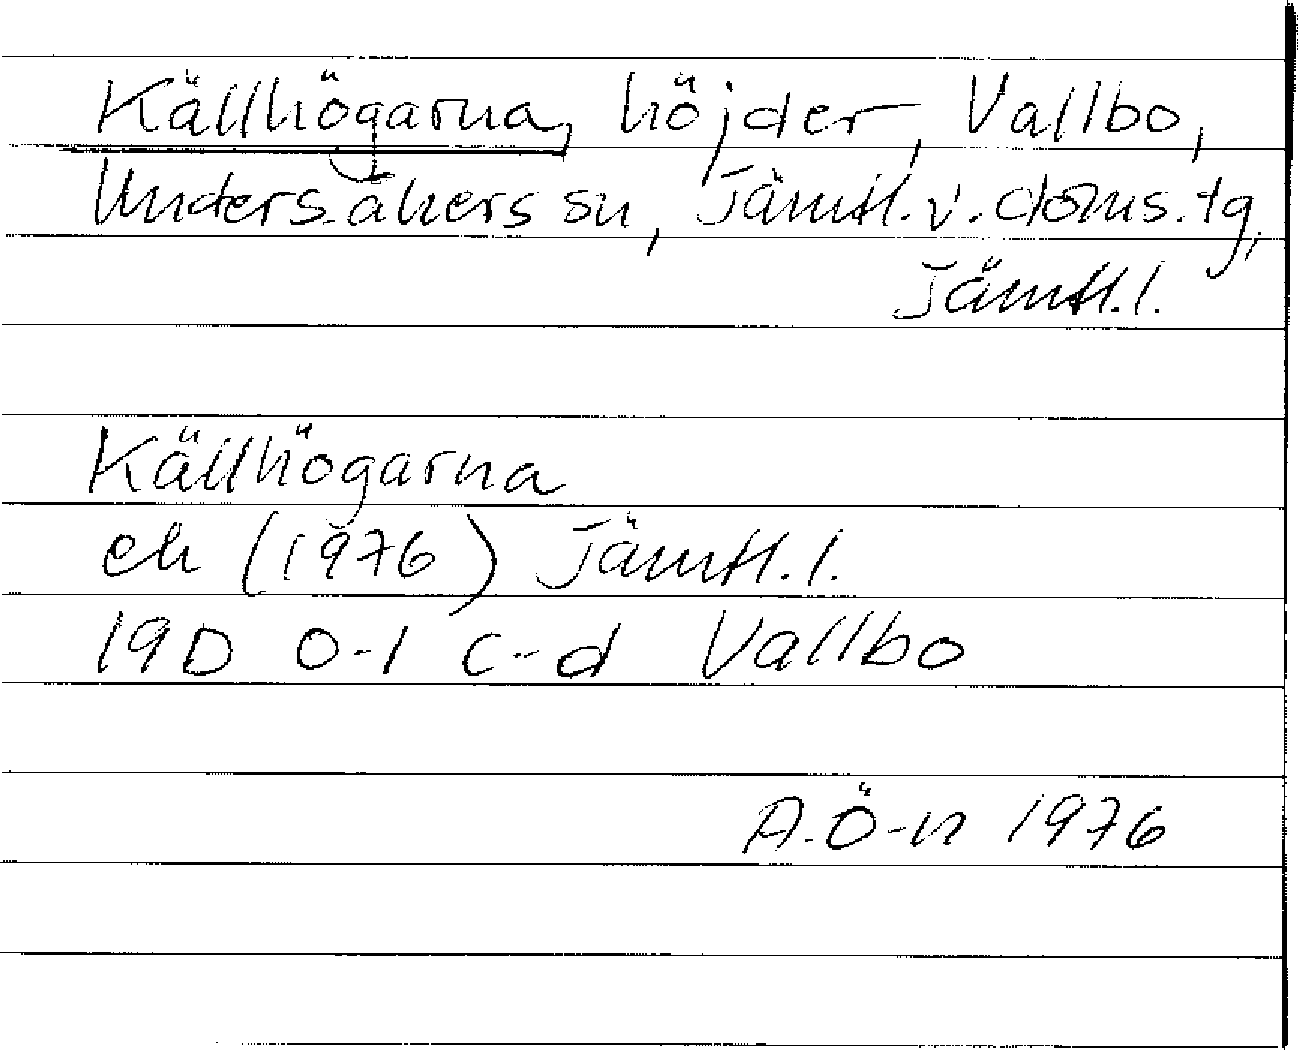 Källhögarna, höjder, Vallbo,
Undersåkers sn, Jämtl. v. doms. tg,
Jämtl. l.
Källhögarna
ek (1976) Jämtl. l.
19D 0-1 c-d Vallbo
A. Ö-n 1976